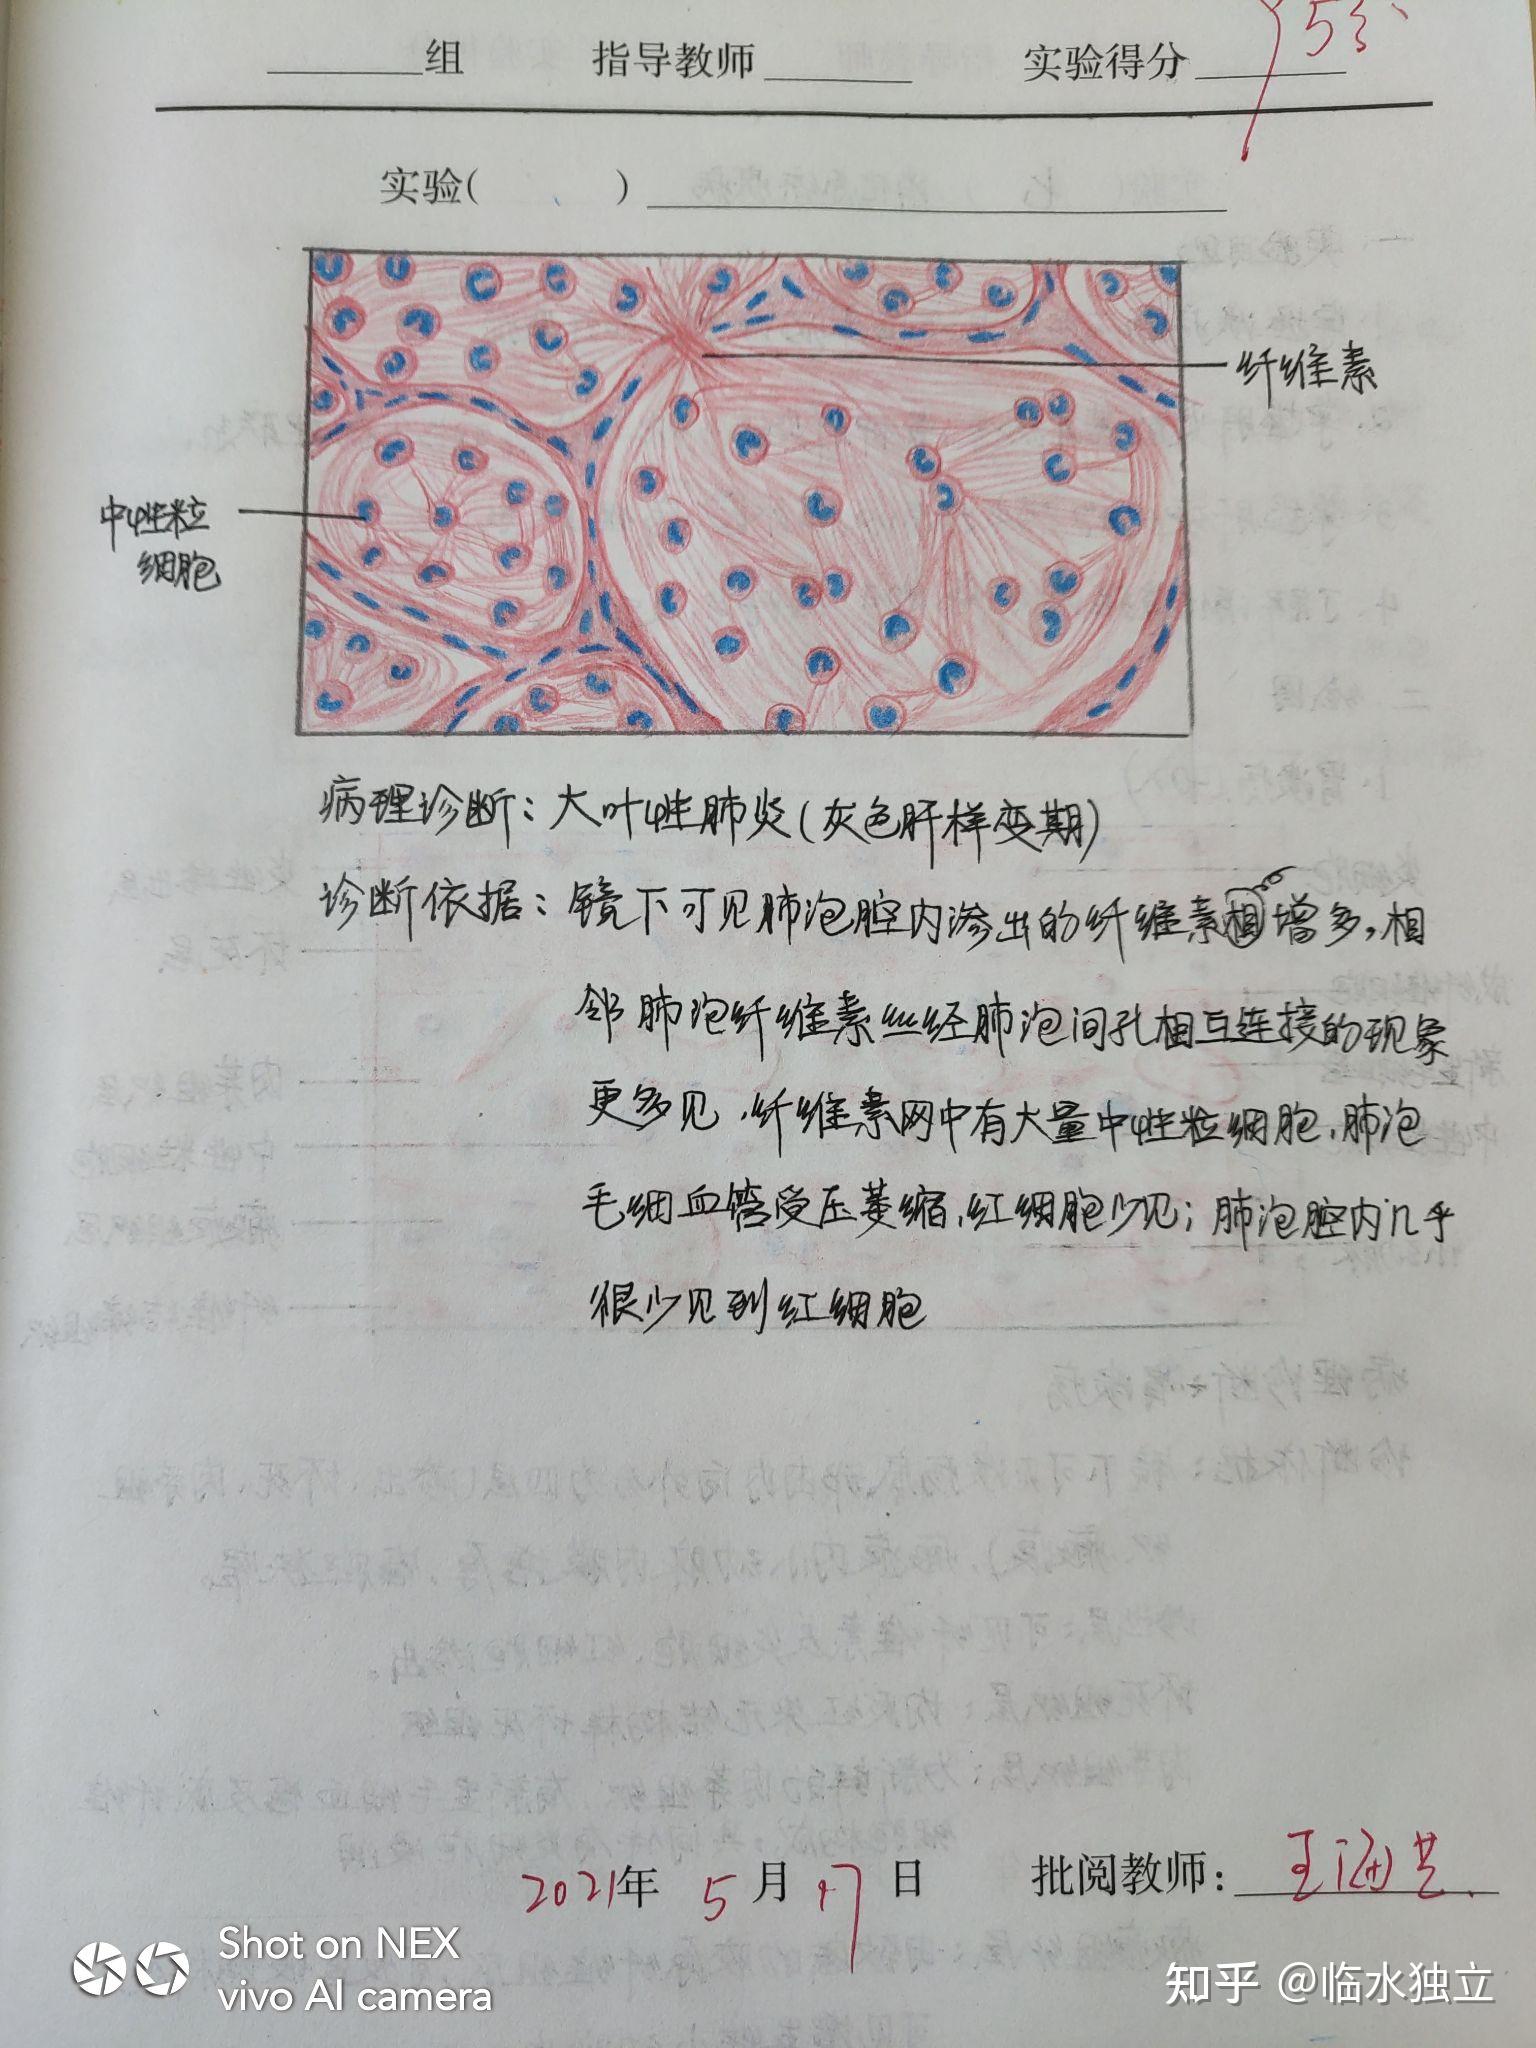 组 指导教师 实验得分 95分
实验( )
纤维素
中性粒
细胞
病理诊断：大叶性肺炎(灰色肝样变期)
诊断依据：镜下可见肺泡腔内渗出的纤维素相增多，相
邻肺泡纤维素丝经肺泡间孔相互连接的现象
更多见，纤维素网中有大量中性粒细胞，肺泡
毛细血管受压萎缩，红细胞少见；肺泡腔内几乎
很少见到红细胞
2021年 5月 17日 批阅教师：王
Shot on NEX
vivo AI camera
知乎 @临水独立